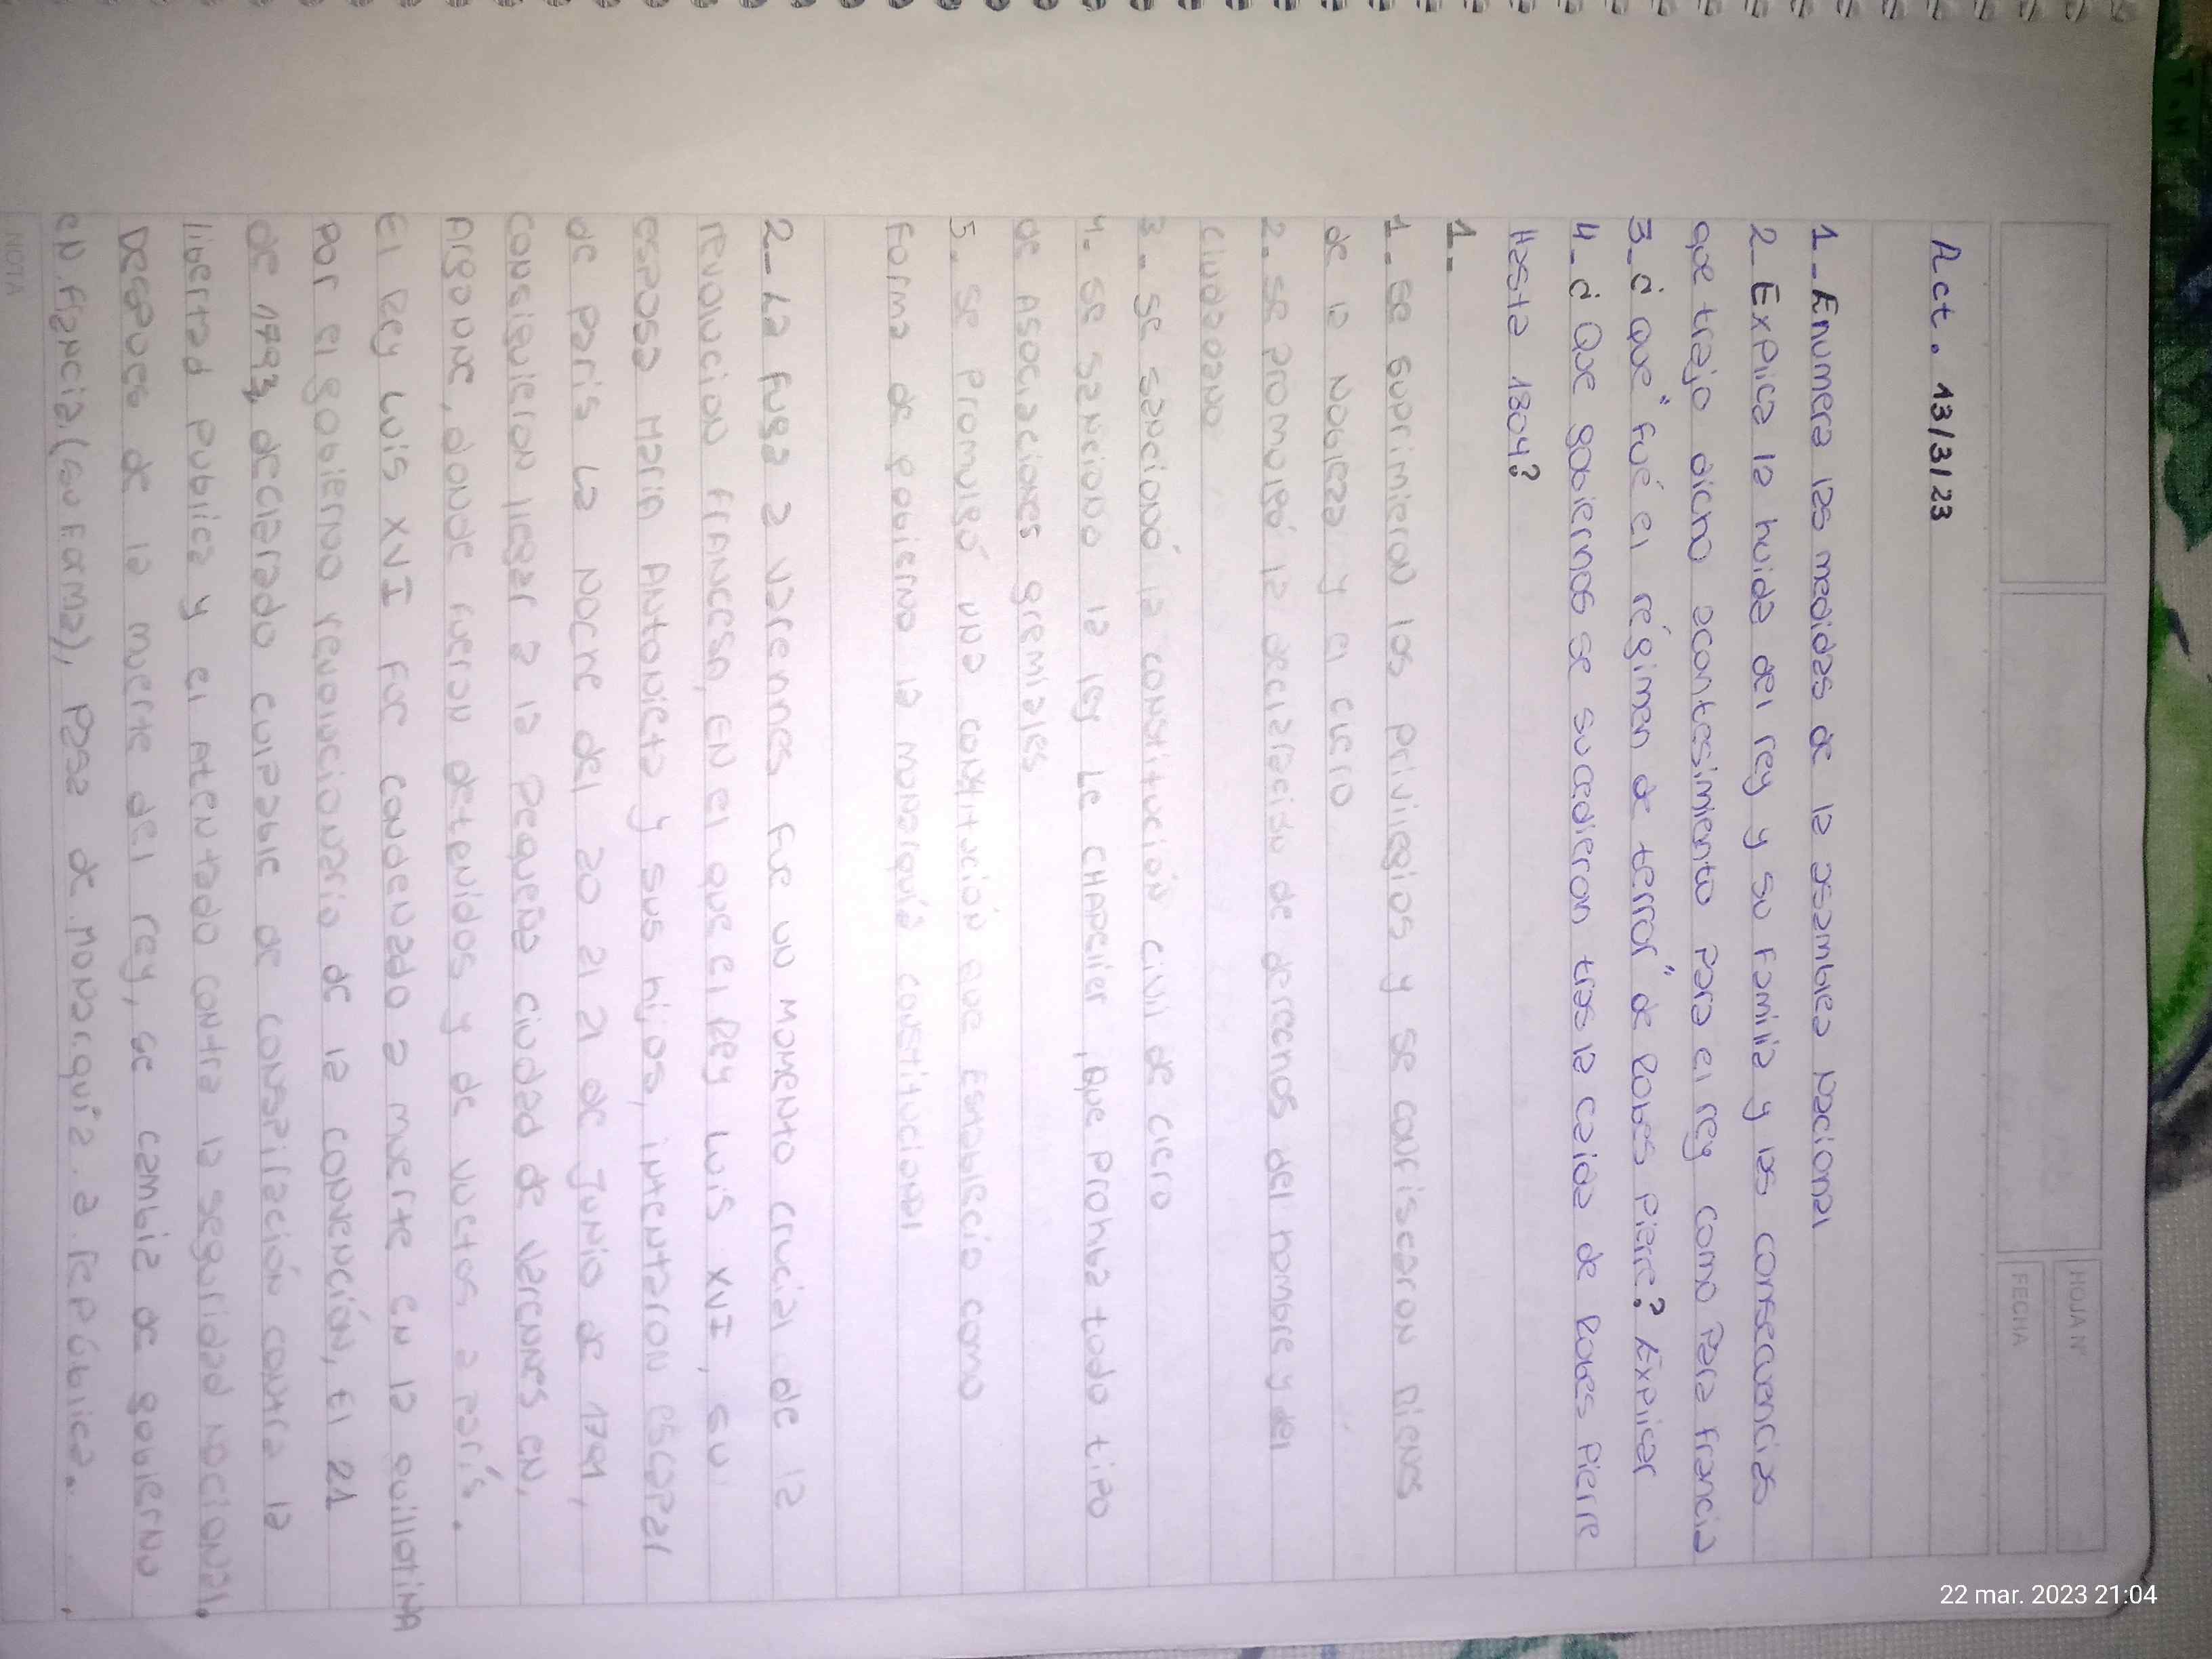 HOJA Nº
FECHA
Act. 13/3/23
1_Enumera las medidas de la asamblea nacional
2_Explica la huida del rey y su familia y las consecuencias
que trajo dicho acontesimiento para el rey como para francia
3_¿Que "fué el régimen de terror" de Robes pierre? Explicar
4_¿Que gobiernos se sucedieron tras la caida de Robes Pierre
Hasta 1804?
1_
1_ se suprimieron los privilegios y se confiscaron bienes
de la Nobleza y el clero
2_ se promolgó la declaración de derechos del hombre y del
ciudadano
3_ se sancionó la constitución civil de clero
4_ se sanciono la ley Le CHAPelier, que Prohiba todo tipo
de Asociaciones gremiales
5_ se promulgó una constitución que Establecio como
forma de gobierno la monarquía constitucional
2_La Fuga a varennes fue un momento crucial de la
revolucion francesa, en el que el Rey Luis XVI, su
esposa Maria Antonieta y sus hijos, intentaron escapar
de paris La Noche del 20 al 21 de Junio de 1791,
consiguieron llegar a la pequeña ciudad de varennes en
Argonne, donde fueron detenidos y de vueltos a parís.
El Rey Luis XVI fue condenado a muerte en la guillotina
por el gobierno revolucionario de la convención, El 21
de 1793, declarado culpable de conspiración contra la
libertad publica y el Atentado contra la seguridad nacional.
Despues de la muerte del rey, se cambia de gobierno
en francia, (su forma), pasa de Monarquía a república.
NOTA
22 mar. 2023 21:04